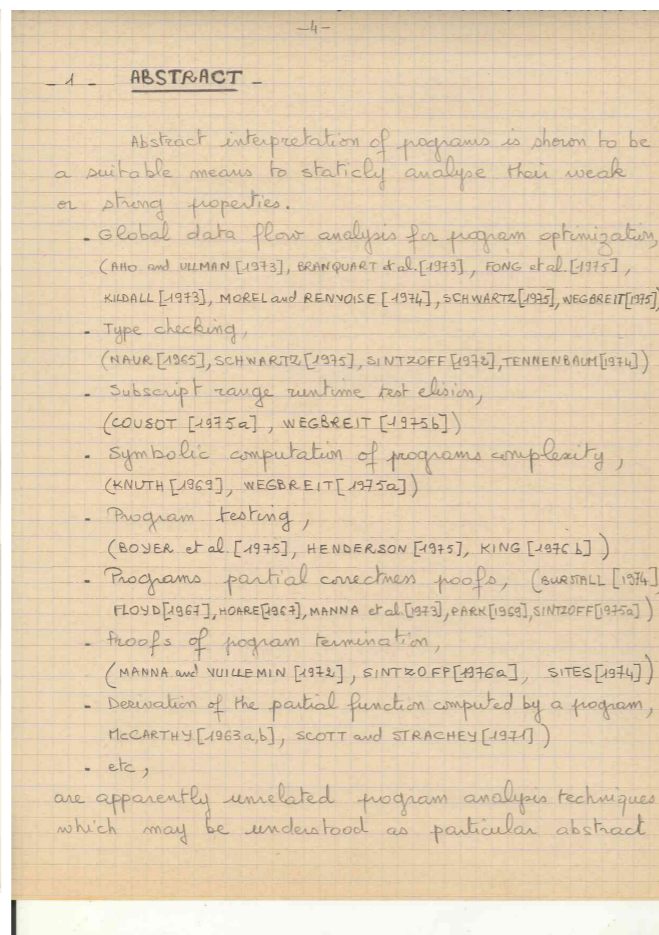 -4-
- 1 - ABSTRACT -
Abstract interpretation of programs is shown to be
a suitable means to staticly analyse their weak
or strong properties.
- Global data flow analysis for program optimization,
(AHO and ULLMAN [1973], BRANQUART et al.[1973], FONG et al.[1975],
KILDALL [1973], MOREL and RENVOISE [1974], SCHWARTZ[1975], WEGBREIT[1975])
- Type checking,
(NAUR [1965], SCHWARTZ [1975], SINTZOFF [1972], TENNENBAUM [1974])
- Subscript range runtime test elision,
(COUSOT [1975a], WEGBREIT [1975b])
- Symbolic computation of programs complexity,
(KNUTH [1969], WEGBREIT [1975a])
- Program testing,
(BOYER et al. [1975], HENDERSON [1975], KING [1976b])
- Programs partial correctness proofs, (BURSTALL [1974]
FLOYD[1967], HOARE[1967], MANNA et al.[1973], PARK[1969], SINTZOFF[1975a])
- Proofs of program termination,
(MANNA and VUILLEMIN [1972], SINTZOFF[1976a], SITES[1974])
- Derivation of the partial function computed by a program,
McCARTHY [1963a,b], SCOTT and STRACHEY [1971])
- etc,
are apparently unrelated program analysis techniques
which may be understood as particular abstract